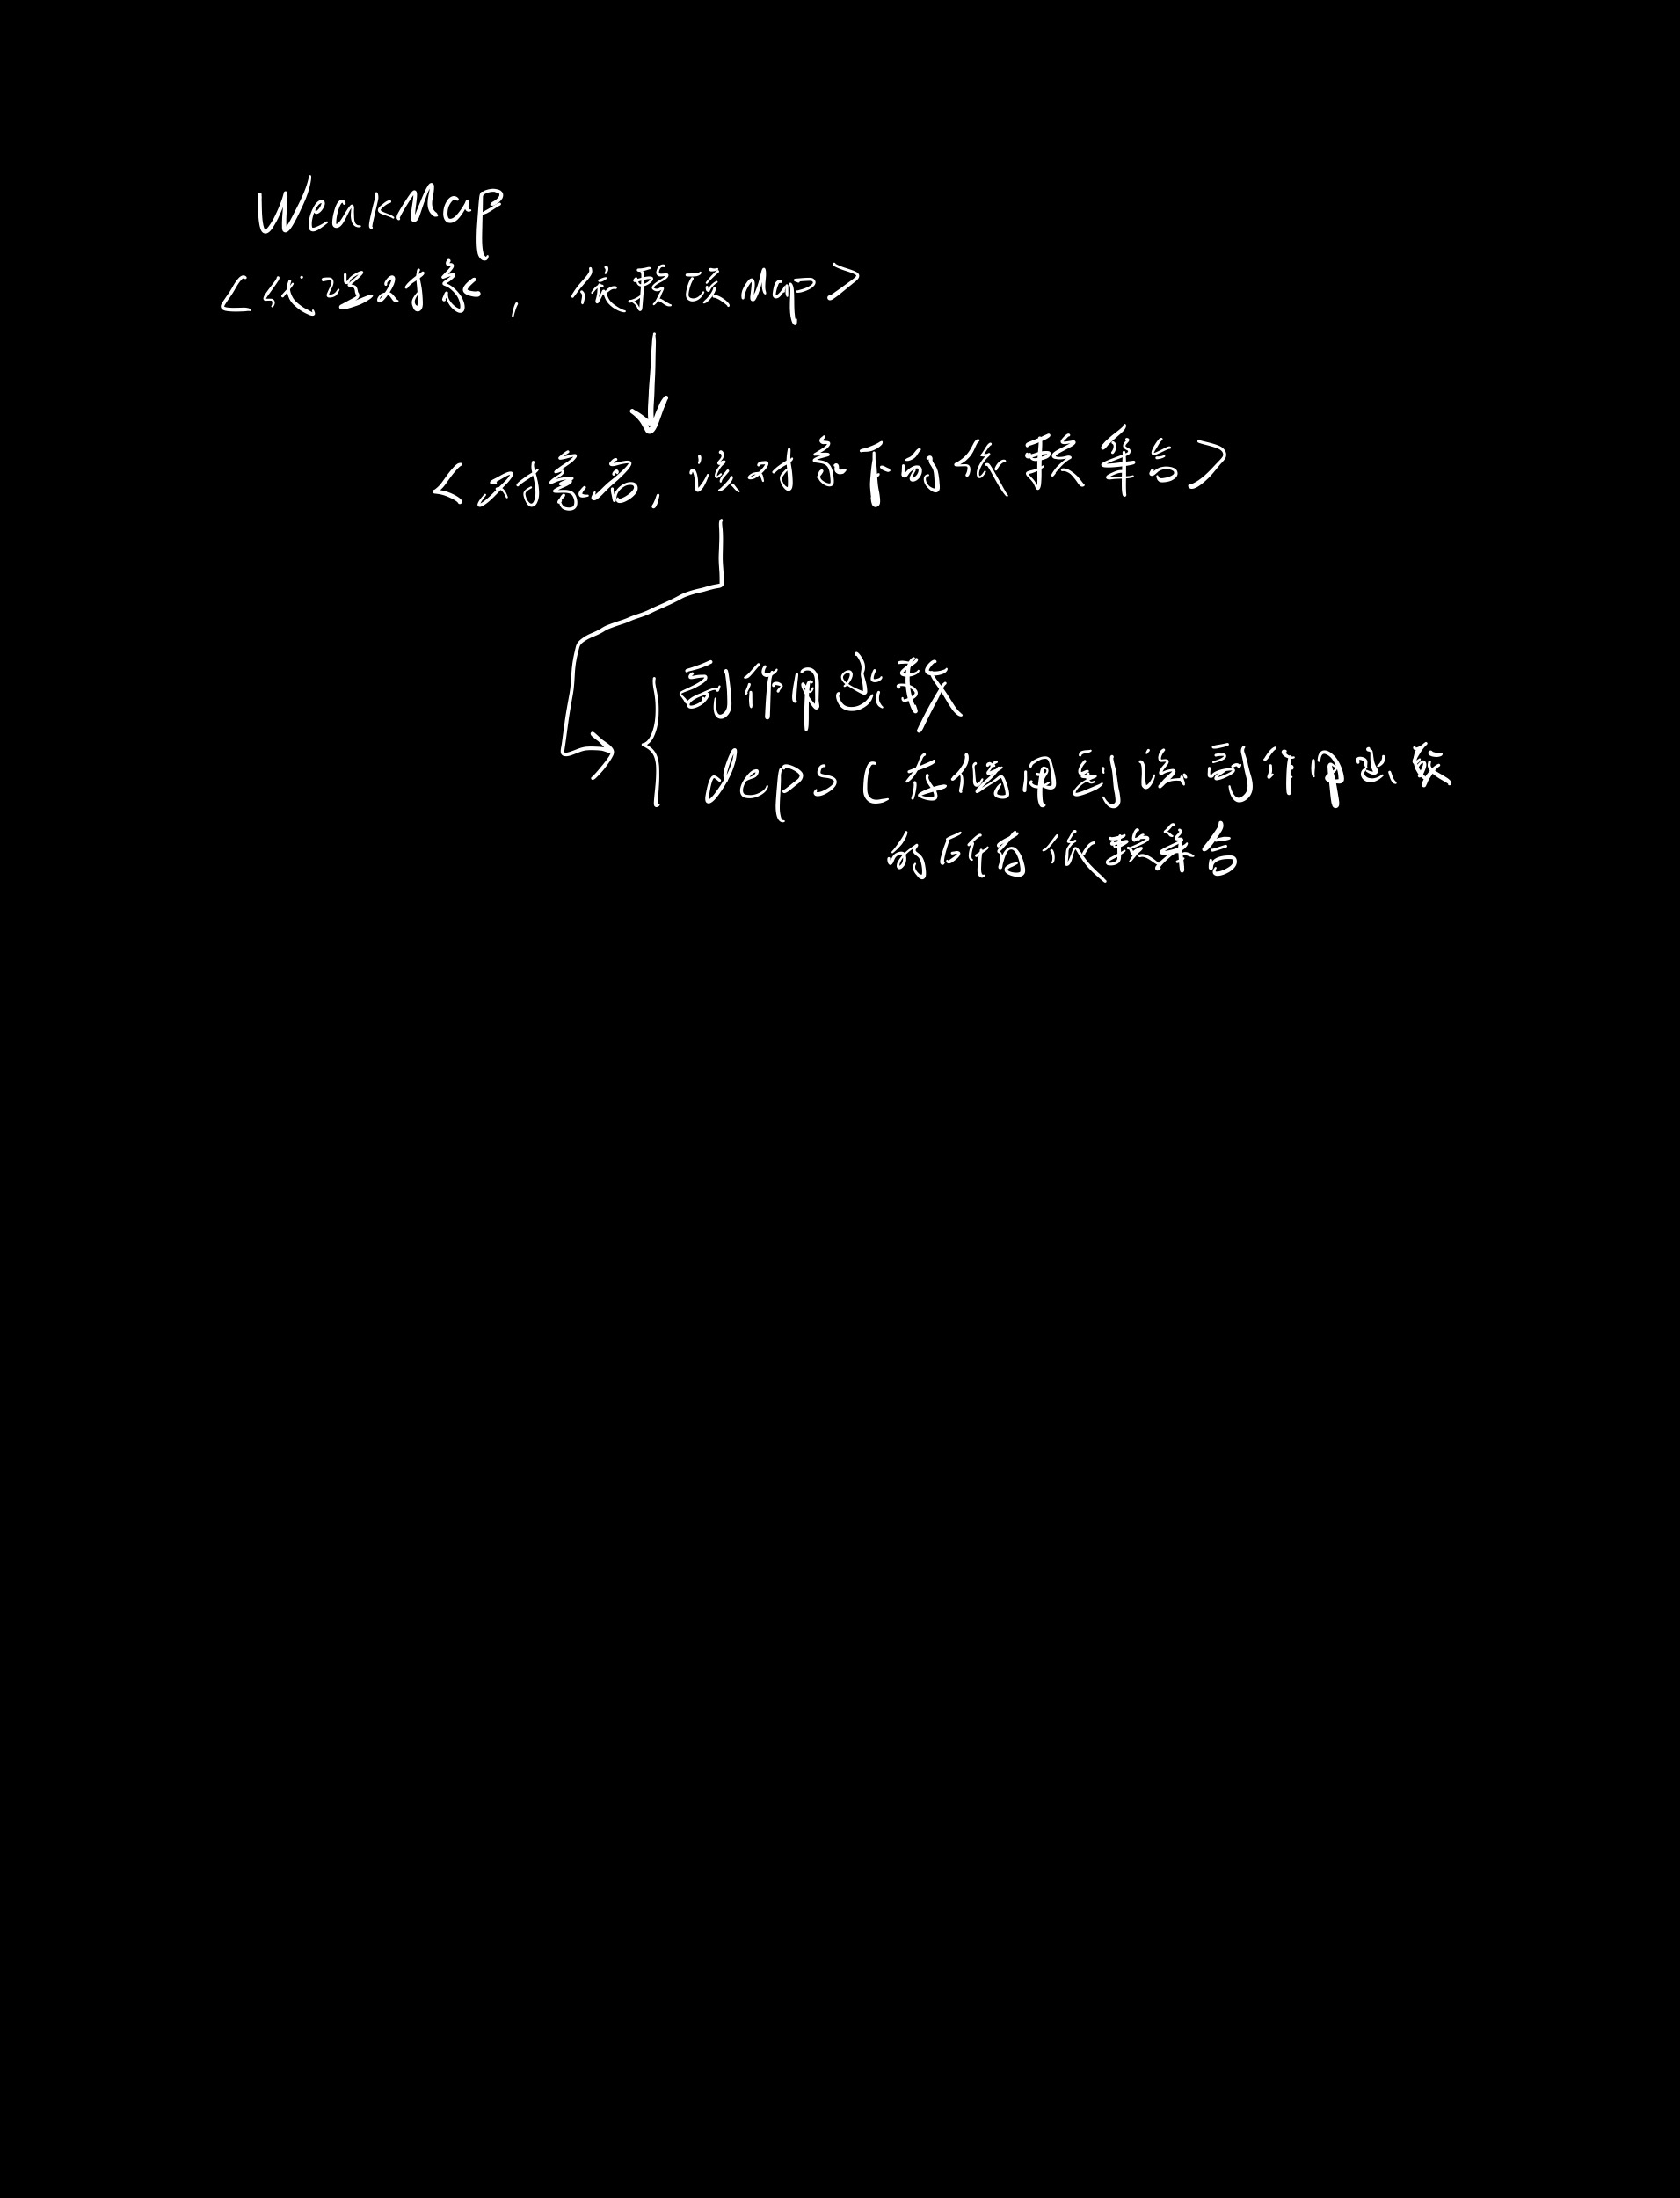 WeakMap
<代理对象, 依赖项Map>
<对象名, 该对象下的依赖集合>
副作用函数
deps(存储用到该副作用函数
的所有依赖集合